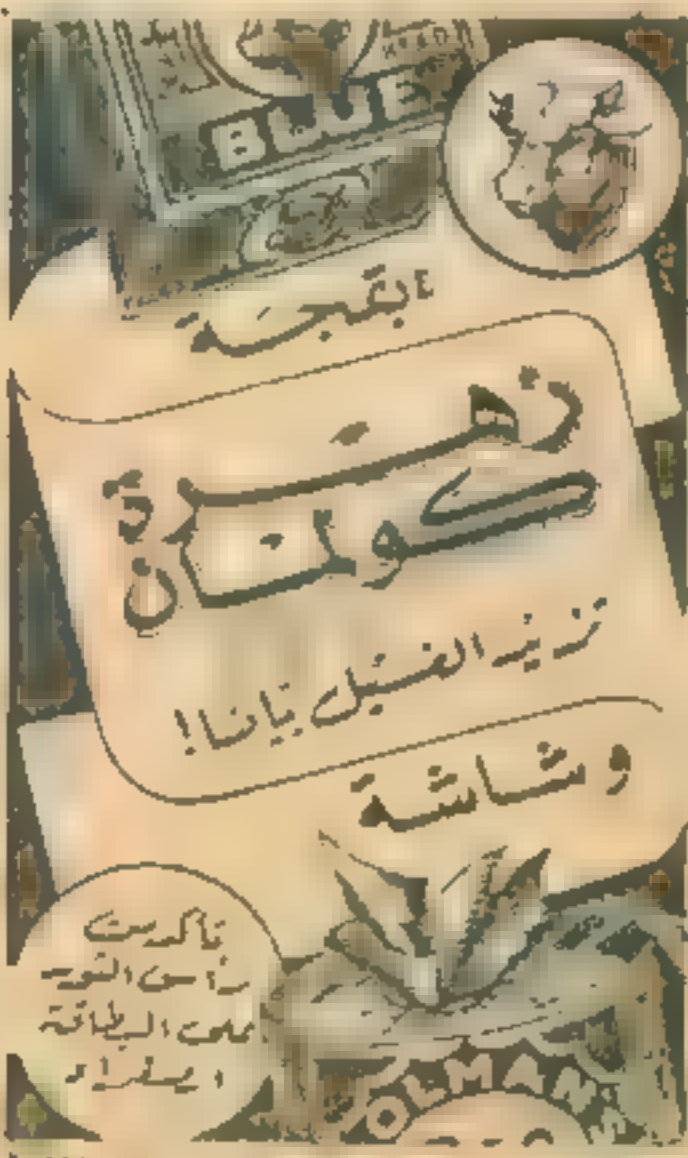 HEAD
BLUE
زهرة
كولمان
تزيد الغسيل بيانا!
وشاشة
تأكد من
رأس الثور
على البطاقة
OLMAN